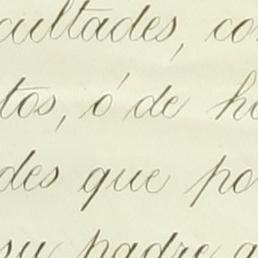 cultades, co
tos, ó de h
des que po
su padre a